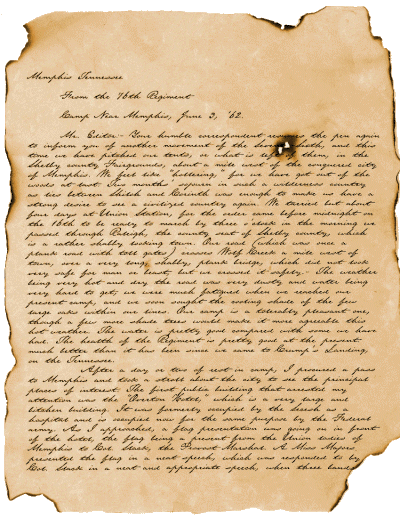 Memphis Tennessee
From the 76th Regiment
Camp Near Memphis, June 3, '62.
Mr. Editor - Your humble correspondent resumes the pen again
to inform you of another movement of the Seventy-Sixth, and this
time we have pitched our tents, or what is left of them, in the
Shelby county Fairgrounds, about a mile west of the conquered city
of Memphis. We feel like "hollering," for we have got out of the
woods at last. Two months sojourn in such a wilderness country
as lies between Shiloh and Corinth was enough to make us have a
strong desire to see a civilized country again. We tarried but about
four days at Union Station, for the order came before midnight on
the 16th to be ready to march by three o'clock in the morning we
passed through Raleigh, the county seat of Shelby county, which
is a rather shabby looking town. Our road (which was once a
plank road with toll gates) crosses Wolf Creek a mile west of
town, over a very long, shabby, plank bridge, which did not look
very safe for man or beast but we crossed it safely. The weather
being very hot and dry the road was very dusty and water being
very hard to get, we were much fatigued when we reached our
present camp, and we soon sought the cooling shade of the few
large oaks within our lines. Our camp is a tolerably pleasant one,
though a few more shade trees would make it more agreeable this
hot weather. The water is pretty good compared with some we have
had. The health of the Regiment is pretty good at the present
much better than it has been since we came to Crump's Landing,
on the Tennessee.
After a day or two of rest in camp, I procured a pass
to Memphis and took a stroll about the city to see the principal
places of interest. The first public building that arrested my
attention was the "Overton Hotel," which is a very large and
kitchen building. It was formerly occupied by the Secesh as a
hospital and is occupied now for the same purpose by the Federal
army. As I approached, a flag presentation was going on in front
of the hotel, the flag being a present from the Union ladies of
Memphis to Col. Slack, the Provost Marshal. A Miss Mayors
presented the flag in a neat speech, which was responded to by
Col. Slack in a neat and appropriate speech, when three bands